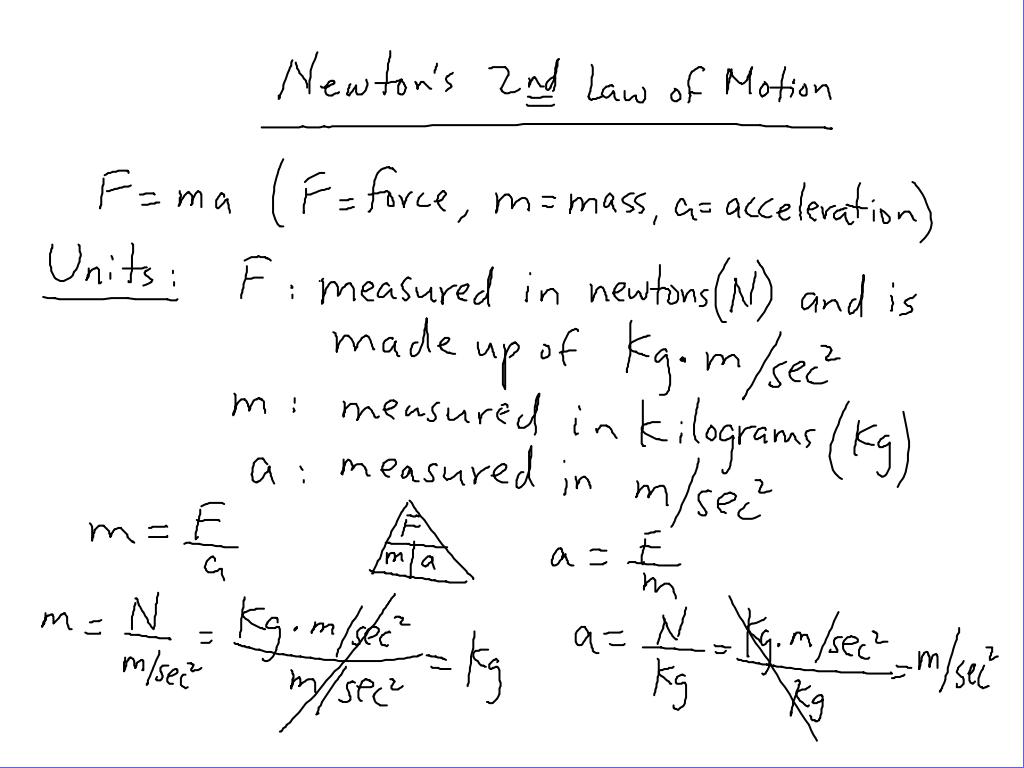 Newton's 2nd Law of Motion
F = ma (F = force, m = mass, a = acceleration)
Units: F : measured in newtons (N) and is
made up of kg·m/sec²
m : measured in kilograms (kg)
a : measured in m/sec²
m = F/a
F
m a
a = F/m
m = N/m/sec² = kg·m/sec²/m/sec² = kg
a = N/kg = kg·m/sec²/kg = m/sec²